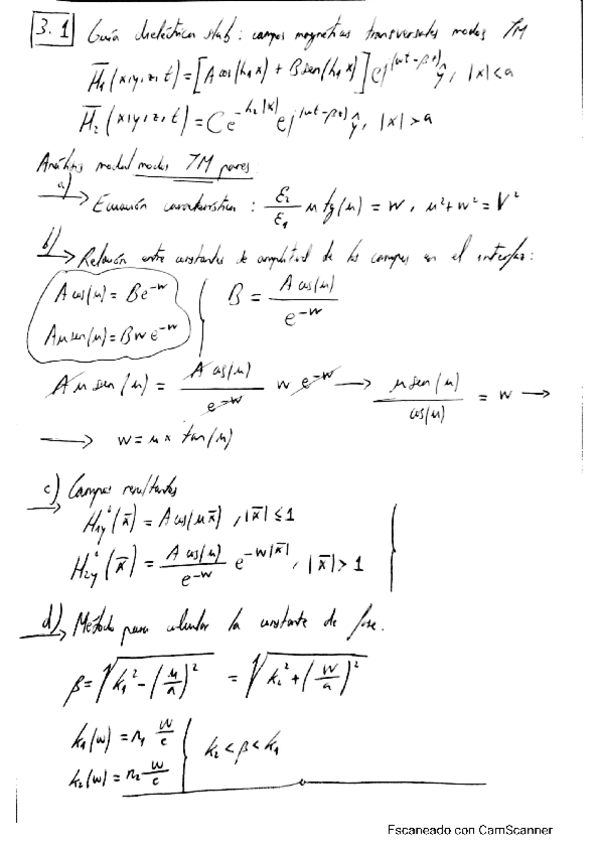 3.1 Guía dieléctrica slab: campos magnéticos transversales modos TM
H̄₁(x,y,z,t) = [A cos(h₁x) + B sen(h₁x)] e^{j(ωt-βz)} ŷ, |x|<a
H̄₂(x,y,z,t) = C e^{-h₂|x|} e^{j(ωt-βz)} ŷ, |x|>a
Análisis modal modos TM pares
a) → Ecuación característica: ε₂/ε₁ u tg(u) = w, u²+w² = V²
b) → Relación entre constantes de amplitud de los campos en el interfaz:
A cos(u) = B e^{-w}
A u sen(u) = B w e^{-w}
B = A cos(u) / e^{-w}
A u sen(u) = A cos(u) / e^{-w} w e^{-w} → u sen(u) / cos(u) = w →
→ w = u × tan(u)
c) Campos resultantes
→ H₁yⁱ(x̄) = A cos(u x̄), |x̄| ≤ 1
H₂yⁱ(x̄) = A cos(u) / e^{-w} e^{-w|x̄|}, |x̄| > 1
d) → Método para calcular la constante de fase.
β = √(k₁² - (u/a)²) = √(k₂² + (w/a)²)
k₁(w) = n₁ w/c
k₂(w) = n₂ w/c
k₂ < β < k₁
Escaneado con CamScanner